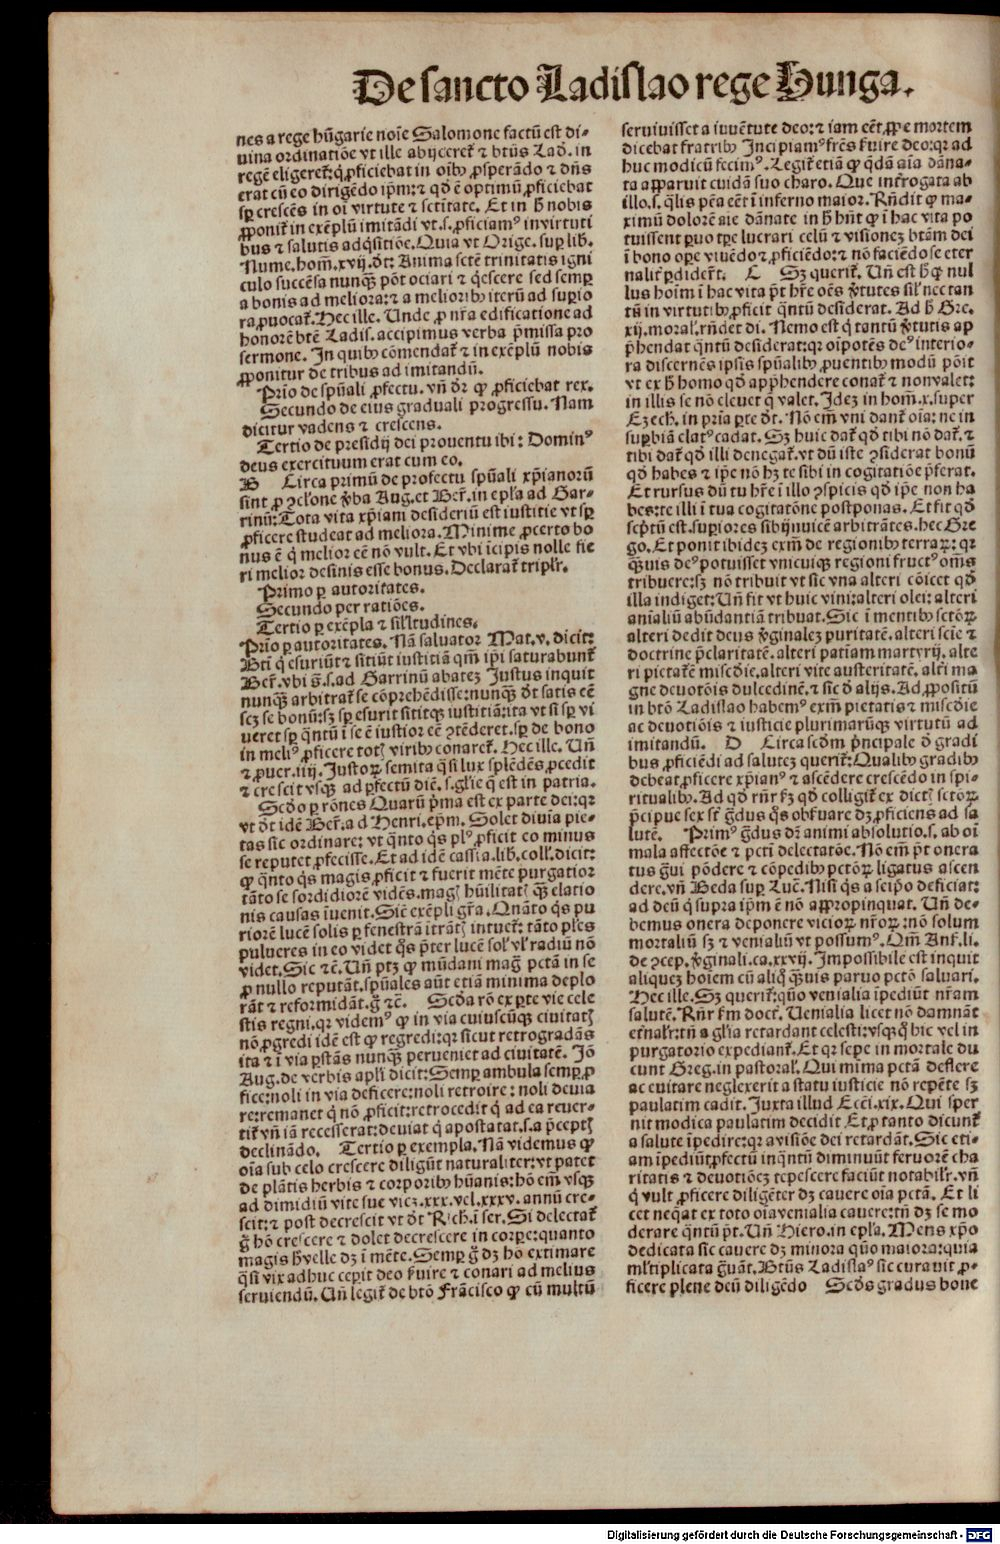 De sancto Ladislao rege Hunga.
nes a rege hūgarie noīe Salomone factū est di-
uina ordinatiōe vt ille abijceret᷑ ⁊ btūs Lad̄. in
regē eligeret᷑: q̄ ꝓficiebat in oībꝰ ꝓsperādo ⁊ dn̄s
erat cū eo dirigēdo ip̄m: ⁊ qd̄ ē optimū ꝓficiebat
sꝑ crescēs in oī virtute ⁊ sctītate. Et in h̄ nobis
ꝓponit᷑ in exēplū imitādi vt .s. ꝓficiamꝰ in virtuti
bus ⁊ salutis adq̄sitiōe. Quia vt Orige. suꝑ lib.
Nume. hom̄. xvij. d̄t: Anima sctē trinitatis igni
culo succēsa nunqꝫ pōt ociari ⁊ q̄escere sed semꝑ
a bonis ad meliora: ⁊ a melioribꝰ iterū ad suꝑio
ra ꝓuocat᷑. Hec ille. Unde ꝓ nr̄a edificatione ad
honorē btē Ladis. accipimus verba p̄missa pro
sermone. In quibꝰ cōmendat᷑ ⁊ in exēplū nobis
ꝓponitur de tribus ad imitandū.
Prīo de spūali ꝓfectu. vn̄ dr̄ ꝙ ꝓficiebat rex.
Secundo de eius graduali progressu. Nam
dicitur vadens ⁊ crescens.
Tertio de presidij dei prouentu ibi: Dominꝰ
deus exercituum erat cum eo.
B Circa primū de profectu spūali xp̄ianorū
sint ꝓ ꝯclōne v̄ba Aug. et Ber̄. in epl̄a ad Gar-
rinū: Tota vita xp̄iani desideriū est iustitie vt sꝑ
ꝓficere studeat ad meliora. Minime ꝓcerto bo
nus ē q̄ melior eē nō vult. Et vbi īcipis nolle fie
ri melior desinis esse bonus. Declarat᷑ tripl̄r.
Primo ꝑ autoritates.
Secundo per ratiōes.
Tertio ꝑ exēpla ⁊ sil̄itudines.
Prīo ꝑ autoritates. Nā saluator Mat. v. dicit:
Btī q̄ esuriūt ⁊ sitiūt iustitiā qm̄ ip̄i saturabunt᷑
Ber̄. vbi s̄. s. ad Garrinū abatez Justus inquit
nunqꝫ arbitrat᷑ se cōprehēdisse: nunqꝫ d̄t satis eē
sez se bonū: sꝫ sꝑ esurit sititqꝫ iustitiā: ita vt si sꝑ vi
ueret sꝑ q̄ntū ī se ē iustior eē ꝯtēderet. sꝑ de bono
in meliꝰ ꝓficere totꝫ viribꝰ conaret᷑. Hec ille. Un̄
⁊ ꝓuer. iiij. Justoꝝ semita q̄si lux splēdēs ꝓcedit
⁊ crescit vsqꝫ ad ꝑfectū diē. s. gl̄ie q̄ est in patria.
Scd̄o ꝑ rōnes Quarū p̄ma est ex parte dei: qꝛ
vt d̄t idē Ber̄. ad Henri. ep̄m. Solet diuīa pie-
tas sic ordinare: vt q̄nto q̄s plꝰ ꝓficit eo minus
se reputet ꝓfecisse. Et ad idē cassia. lib. coll̄. dicit:
ꝙ q̄nto q̄s magis ꝓficit ⁊ fuerit mēte purgatior
tāto se sordidiorē vidēs. magꝫ hūilitatꝫ qꝫ elatio
nis causas īuenit. Sic̄ exēpli gr̄a. Qnāto q̄s pu
riorē lucē solis ꝑ fenestrā ītrātꝫ intuet᷑: tāto pl̄es
pulueres in eo videt q̄s p̄ter lucē sol̄ vl̄ radiū nō
videt. Sic ⁊c̄. Un̄ ptꝫ ꝙ mūdani magꝫ pctā in se
ꝓ nullo reputāt. spūales aūt etiā minima deplo
rāt ⁊ reformidāt. ḡ ⁊c̄. Scd̄a rō ex ꝑte vie cele
stis regni. qꝛ videmꝰ ꝙ in via cuiuscūqꝫ ciuitatꝫ
nō ꝓgredi idē est ꝙ regredi: qꝛ sicut retrogradās
ita ⁊ ī via ꝑstās nunqꝫ perueniet ad ciuitatē. Jō
Aug. de verbis apl̄i dicit: Semꝑ ambula semꝑ ꝓ
fice: noli in via deficere: noli retroire: noli deuia
re: remanet q̄ nō ꝓficit: retrocedit q̄ ad ea reuer-
tit᷑ vn̄ iā recesserat: deuiat q̄ apostatat. s. a p̄ceptꝫ
declināდo. Tertio ꝑ exempla. Nā videmus ꝙ
oīa sub celo crescere diligūt naturaliter: vt patet
de plātis herbis ⁊ corporibꝰ hūanis: hō em̄ vsqꝫ
ad dimidiū vite sue vicꝫ. xxx. vel. xxxv. annū cre-
scit: ⁊ post decrescit vt d̄t Rich. ī ser. Si delectat᷑
ḡ hō crescere ⁊ dolet decrescere in corꝑe: quanto
magis h̄ velle dꝫ ī mēte. Semꝑ ḡ dꝫ hō extimare
q̄si vix adhuc ceꝑit deo s̄uire ⁊ conari ad melius
seruiendū. Un̄ legit᷑ de btō Frācisco ꝙ cū multū
seruiuisset a iuuētute deo: ⁊ iam eēt ꝓpe mortem
dicebat fratribꝰ Incipiamꝰ fr̄es s̄uire deo: qꝛ ad
huc modicū fecimꝰ. Legit᷑ etiā ꝙ q̄dā aīa dāna-
ta apparuit cuidā suo charo. Que int̄rogata ab
illo. s. q̄lis pēa eēt ī inferno maior. Rn̄dit ꝙ ma-
ximū dolorē aīe dānate in h̄ hn̄t ꝙ ī hac vita po
tuissent ꝑuo tꝑe lucrari celū ⁊ visionez btām dei
ī bono oꝑe viuēdo ⁊ ꝓficiēdo: ⁊ nō faciēdo se eter
nalit᷑ ꝑdider̄t. C Sꝫ querit᷑. Un̄ est h̄ ꝙ nul
lus hoīm ī hac vita p̄t hr̄e oēs v̄tutes sil̄ nec tan
tū in virtutibꝰ ꝓficit q̄ntū desiderat. Ad h̄ Gre.
xij. moral̄. rn̄det di. Nemo est q̄ tantū v̄tutis ap
p̄hendat q̄ntū desiderat: qꝛ oīpotēs deꝰ interio-
ra discernēs ipsis spūalibꝰ ꝓuentibꝰ modū pōit
vt ex h̄ homo qd̄ app̄hendere conat᷑ ⁊ non valet:
in illis se nō eleuet q̄ valet. Idez in hom̄. x. super
Ezech. in prīa ꝑte d̄t. Nō em̄ vni dant᷑ oīa: ne in
suꝑbiā elatꝰ cadat. Sꝫ huic dat᷑ qd̄ tibi nō dat᷑. ⁊
tibi dat᷑ qd̄ illi denegat᷑. vt dū iste ꝯsiderat bonū
qd̄ habes ⁊ ip̄e nō hꝫ te sibi in cogitatiōe p̄ferat.
Et rursus dū tu hr̄e ī illo ꝯspicis qd̄ ip̄e non ha
bes: te illi ī tua cogitatōne postponas. Et fit qd̄
scp̄tū est. suꝑiores sibijnuicē arbitrātes. hec Gre
go. Et ponit ibidez exm̄ de regionibꝰ terraꝝ: qꝛ
qꝫuis deꝰ potuisset vnicuiqꝫ regioni fructꝰ om̄s
tribuere: sꝫ nō tribuit vt sic vna alteri cōicet qd̄
illa indiget: Un̄ fit vt huic vini: alteri olei: alteri
anīaliū abūdantiā tribuat. Sic ī mentibꝰ sctōꝝ
alteri dedit deus v̄ginalez puritatē. alteri scīe ⁊
doctrine p̄claritatē. alteri patīam martyrij. alte
ri pietatē misc̄die. alteri vite austeritatē. alt̄i ma
gne deuotōis dulcedinē. ⁊ sic d̄ alijs. Ad ꝓpositū
in btō Ladislao habemꝰ exm̄ pietatis ⁊ misc̄die
ac deuotiōis ⁊ iusticie plurimarūqꝫ virtutū ad
imitandū. D Circa scd̄m p̄ncipale d̄ gradi
bus ꝓficiēdi ad salutez querit᷑: Qualibꝰ gradibꝰ
debeat ꝓficere xp̄ianꝰ ⁊ ascēdere crescēdo in spi-
ritualibꝰ. Ad qd̄ rn̄r s̄ꝫ qd̄ colligit᷑ ex dictꝫ sctōꝝ.
p̄cipue sex st̄ ḡdus q̄s obs̄uare dꝫ ꝓficiens ad sa
lutē. Primꝰ ḡdus d̄ꝫ animi absolutio. s. ab oī
mala affectōe ⁊ pctī delectatōe. Nō em̄ p̄t onera
tus ḡui pōdere ⁊ cōpedibꝰ pctōꝝ ligatus ascen
dere. vn̄ Beda suꝑ Luc̄. Nisi q̄s a seipo deficiat:
ad deū q̄ supra ip̄m ē nō appropinquat. Un̄ de-
bemus onera deponere vicioꝝ nr̄oꝝ: nō solum
mortaliū sꝫ ⁊ venialiū vt possumꝰ. Qm̄ Ans̄. li.
de ꝯcep. v̄ginali. ca. xxvij. Impossibile est inquit
aliquez hoīem cū aliq̄ qꝫuis paruo pctō saluari.
Hec ille. Sꝫ querit᷑: quō venialia īpediūt nr̄am
salutē. Rn̄r s̄m doct̄. Uenialia licet nō damnāt
et̄nal̄r: tn̄ a gl̄ia retardant celesti: vsqꝫq̄ hic vel in
purgatorio expediant᷑. Et qꝛ sepe in mortale du
cunt Greg. in pastoral̄. Qui mīma pctā deflere
ac euitare neglexerit a statu iusticie nō repēte sꝫ
paulatim cadit. Juxta illud Ecci. xix. Qui sper
nit modica paulatim decidit Et ꝓ tanto dicunt᷑
a salute īpedire: qꝛ a visiōe dei retardāt. Sic eti-
am īpediūt ꝓfectū inq̄ntū diminuūt feruorē cha
ritatis ⁊ deuotiōez tepescere faciūt notabil̄r. vn̄
q̄ vult ꝓficere diligēter dꝫ cauere oīa pctā. Et li
cet neq̄at ex toto oīa venialia cauere: tn̄ dꝫ se mo
derare q̄ntū p̄t. Un̄ Hiero. in epl̄a. Mens xp̄o
dedicata sic cauere dꝫ minora quō maiora: quia
ml̄tiplicata ḡuāt. Btūs Ladislaꝰ sic curauit ꝓ-
ficere plene deū diligēdo Scd̄s gradus bone
Digitalisierung gefördert durch die Deutsche Forschungsgemeinschaft - DFG